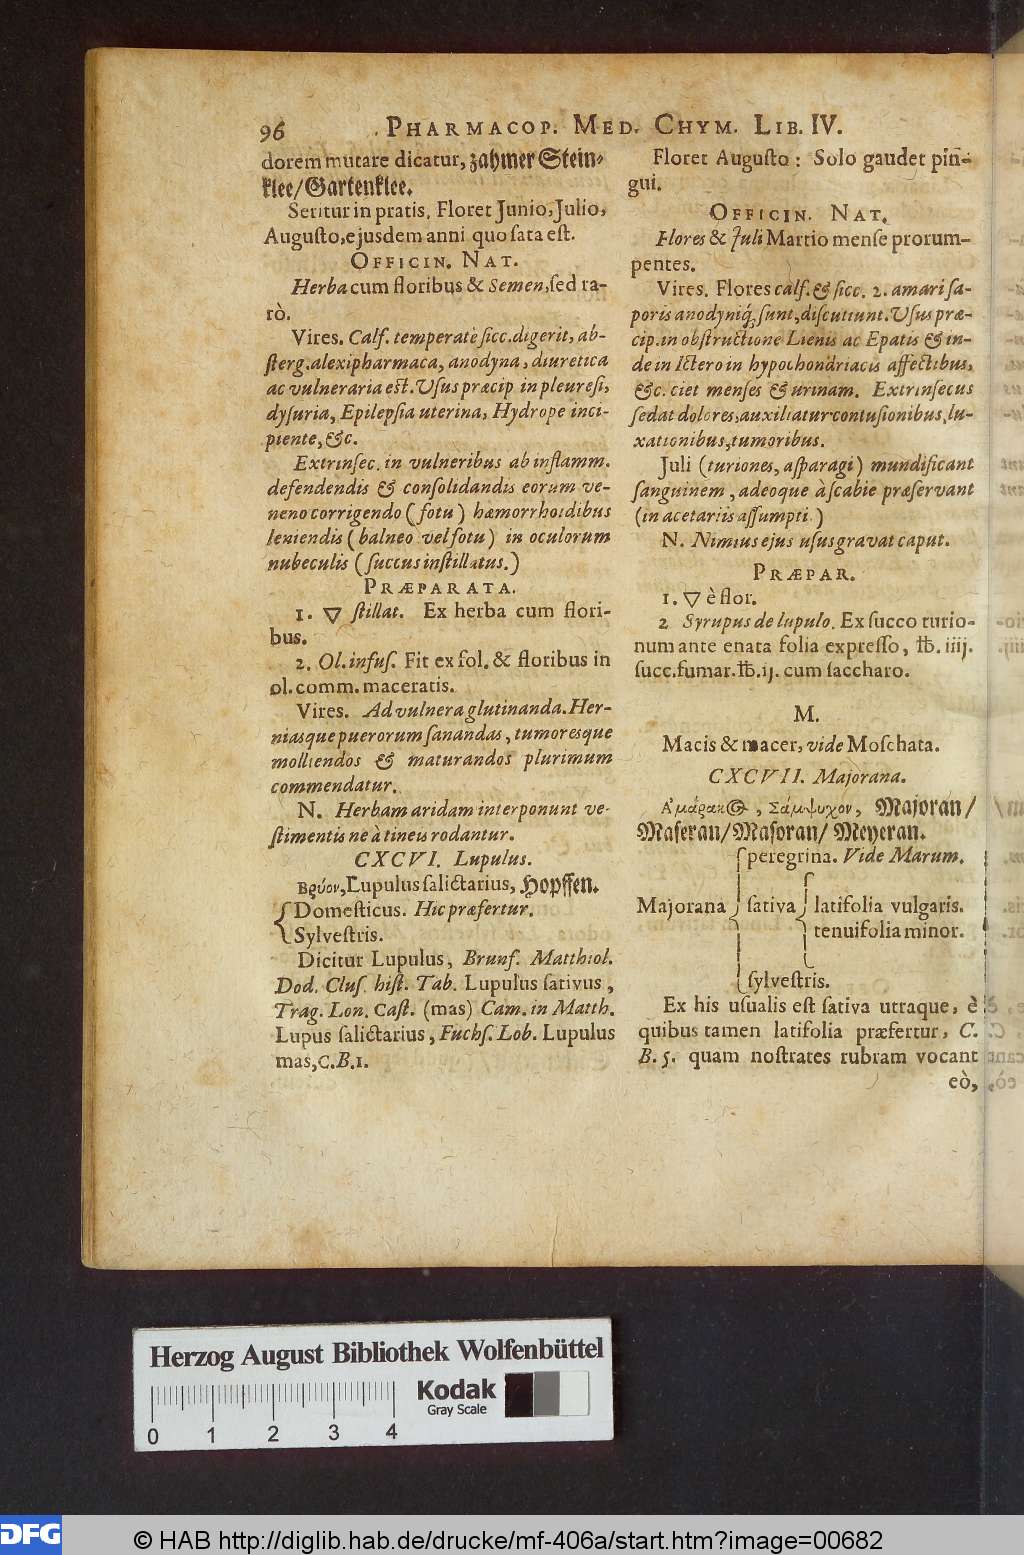 96 PHARMACOP. MED. CHYM. LIB. IV.
dorem mutare dicatur, zahmer Stein-
klee/Gartenklee.
Seritur in pratis. Floret Junio, Julio,
Augusto, ejusdem anni quo sata est.
OFFICIN. NAT.
Herba cum floribus & Semen, sed ra-
rò.
Vires. Calf. temperatè sicc. digerit, ab-
sterg. alexipharmaca, anodyna, diuretica
ac vulneraria est. Usus præcip in pleuresi,
dysuria, Epilepsia uterina, Hydrope inci-
piente, &c.
Extrinsec. in vulneribus ab inflamm.
defendendis & consolidandis eorum ve-
neno corrigendo (fotu) hæmorrhoidibus
leniendis (balneo vel fotu) in oculorum
nubeculis (succus instillatus.)
PRÆPARATA.
1. ▽ stillat. Ex herba cum flori-
bus.
2. Ol. infus. Fit ex fol. & floribus in
ol. comm. maceratis.
Vires. Ad vulnera glutinanda. Her-
niasque puerorum sanandas, tumoresque
molliendos & maturandos plurimum
commendatur.
N. Herbam aridam interponunt ve-
stimentis ne à tineis rodantur.
CXCVI. Lupulus.
Βρύον, Lupulus salictarius, Hopffen.
{ Domesticus. Hic præfertur.
Sylvestris.
Dicitur Lupulus, Brunf. Matthiol.
Dod. Clus. hist. Tab. Lupulus sativus,
Trag. Lon. Cast. (mas) Cam. in Matth.
Lupus salictarius, Fuchs. Lob. Lupulus
mas, C. B. 1.
Floret Augusto: Solo gaudet pin-
gui.
OFFICIN. NAT.
Flores & Juli Martio mense prorum-
pentes.
Vires. Flores calf. & sicc. 2. amari sa-
poris anodyniq́; sunt, discutiunt. Usus præ-
cip. in obstructione Lienis ac Epatis & in-
de in Ictero in hypochondriacis affectibus,
&c. ciet menses & urinam. Extrinsecus
sedat dolores, auxiliatur contusionibus, lu-
xationibus, tumoribus.
Juli (turiones, asparagi) mundificant
sanguinem, adeoque à scabie præservant
(in acetariis assumpti.)
N. Nimius ejus usus gravat caput.
PRÆPAR.
1. ▽ è flor.
2 Syrupus de lupulo. Ex succo turio-
num ante enata folia expresso, ℔. iiij.
succ. fumar. ℔. ij. cum saccharo.
M.
Macis & macer, vide Moschata.
CXCVII. Majorana.
Ἀμάρακος, Σάμψυχον, Majoran/
Maseran/Masoran/Meyeran.
peregrina. Vide Marum.
Majorana { sativa { latifolia vulgaris.
tenuifolia minor.
sylvestris.
Ex his usualis est sativa utraque, è
quibus tamen latifolia præfertur, C.
B. 5. quam nostrates rubram vocant
eò,
Herzog August Bibliothek Wolfenbüttel
Kodak
Gray Scale
0 1 2 3 4
DFG
© HAB http://diglib.hab.de/drucke/mf-406a/start.htm?image=00682